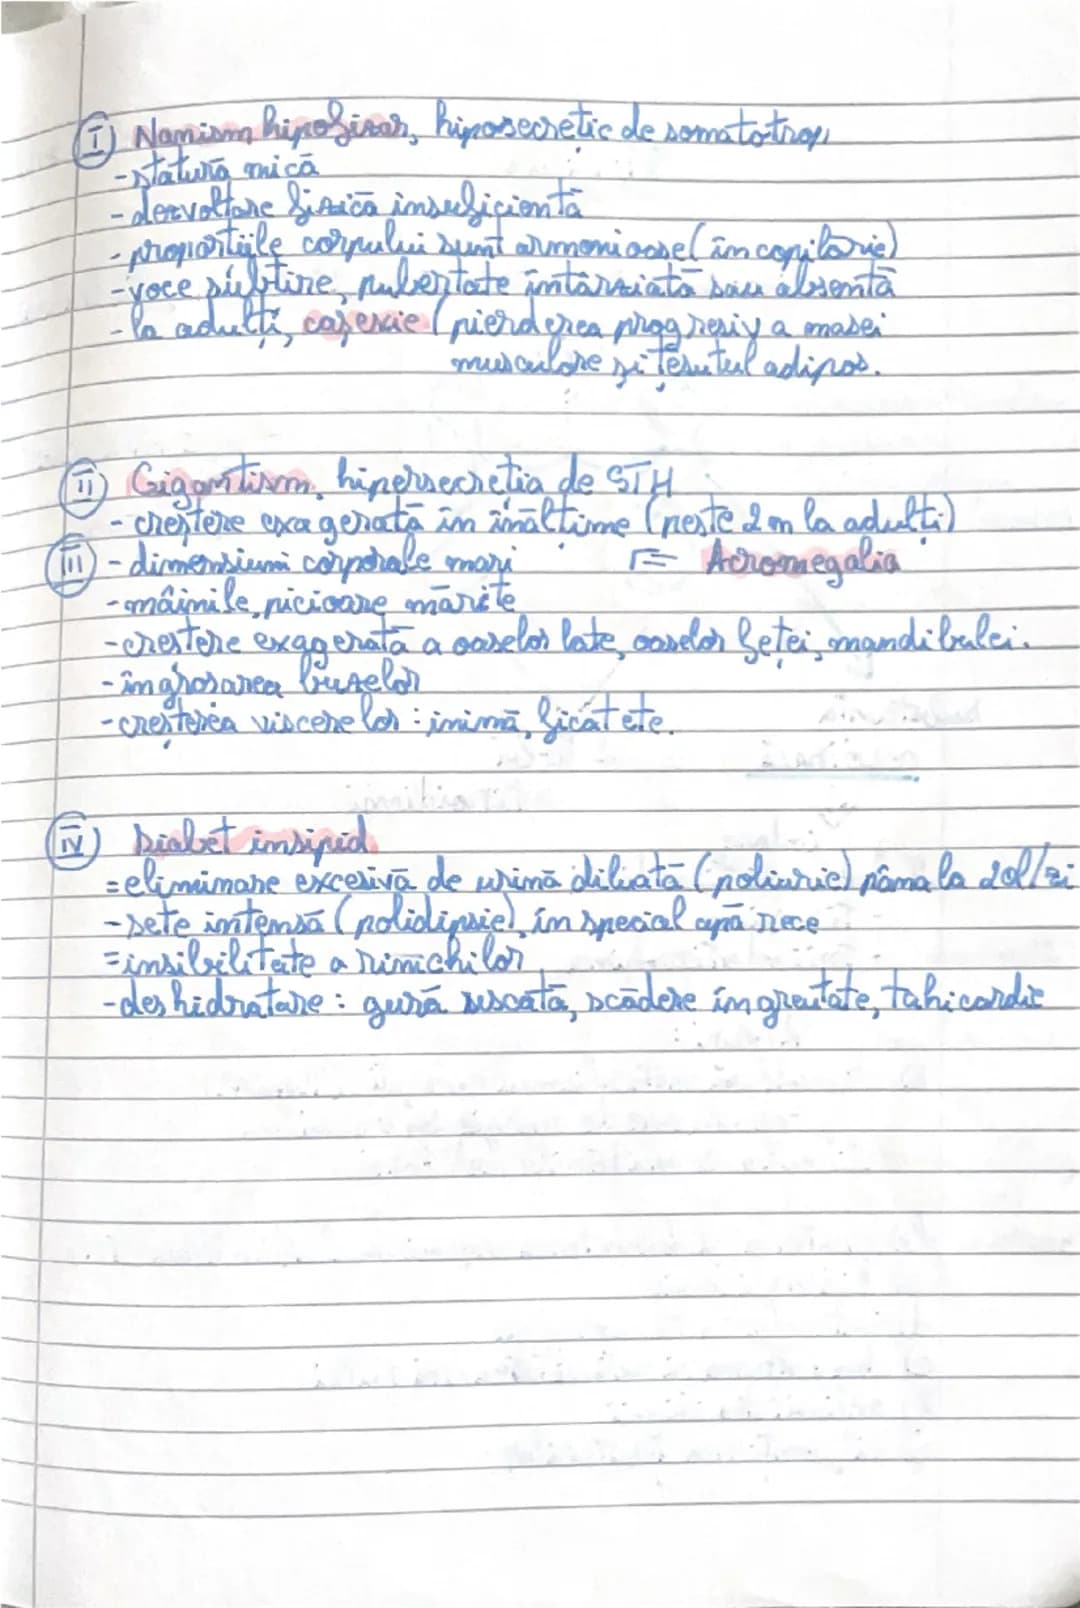 I Nanism hipofizar, hiposecretie de somatotrop
- statură mică
- dezvoltare fizică insuficientă
- proporțiile corpului sunt armonioase (în copilărie)
- voce subtire, pubertate întârziată sau absentă
- la adulți, casexie (pierderea progresiv a masei
musculare și țesutul adipos.
II Gigantism, hipersecretia de STH
- creștere exagerată în înălțime (peste 2 m la adulți)
III - dimensiuni corporale mari = Acromegalia
- mâinile, picioare mărite
- crestere exagerată a oaselor late, oaselor feței, mandibulei.
- îngrosarea buzelor
- creșterea viscerelor : inimă, ficat etc.
IV Diabet insipid
= eliminare excesivă de urină diluată (poliurie) pâna la 20l/zi
- sete intensă (polidipsie), în special apă rece
= insibilitate a rinichilor
- deshidratare : gură uscată, scădere în greutate, tahicardie